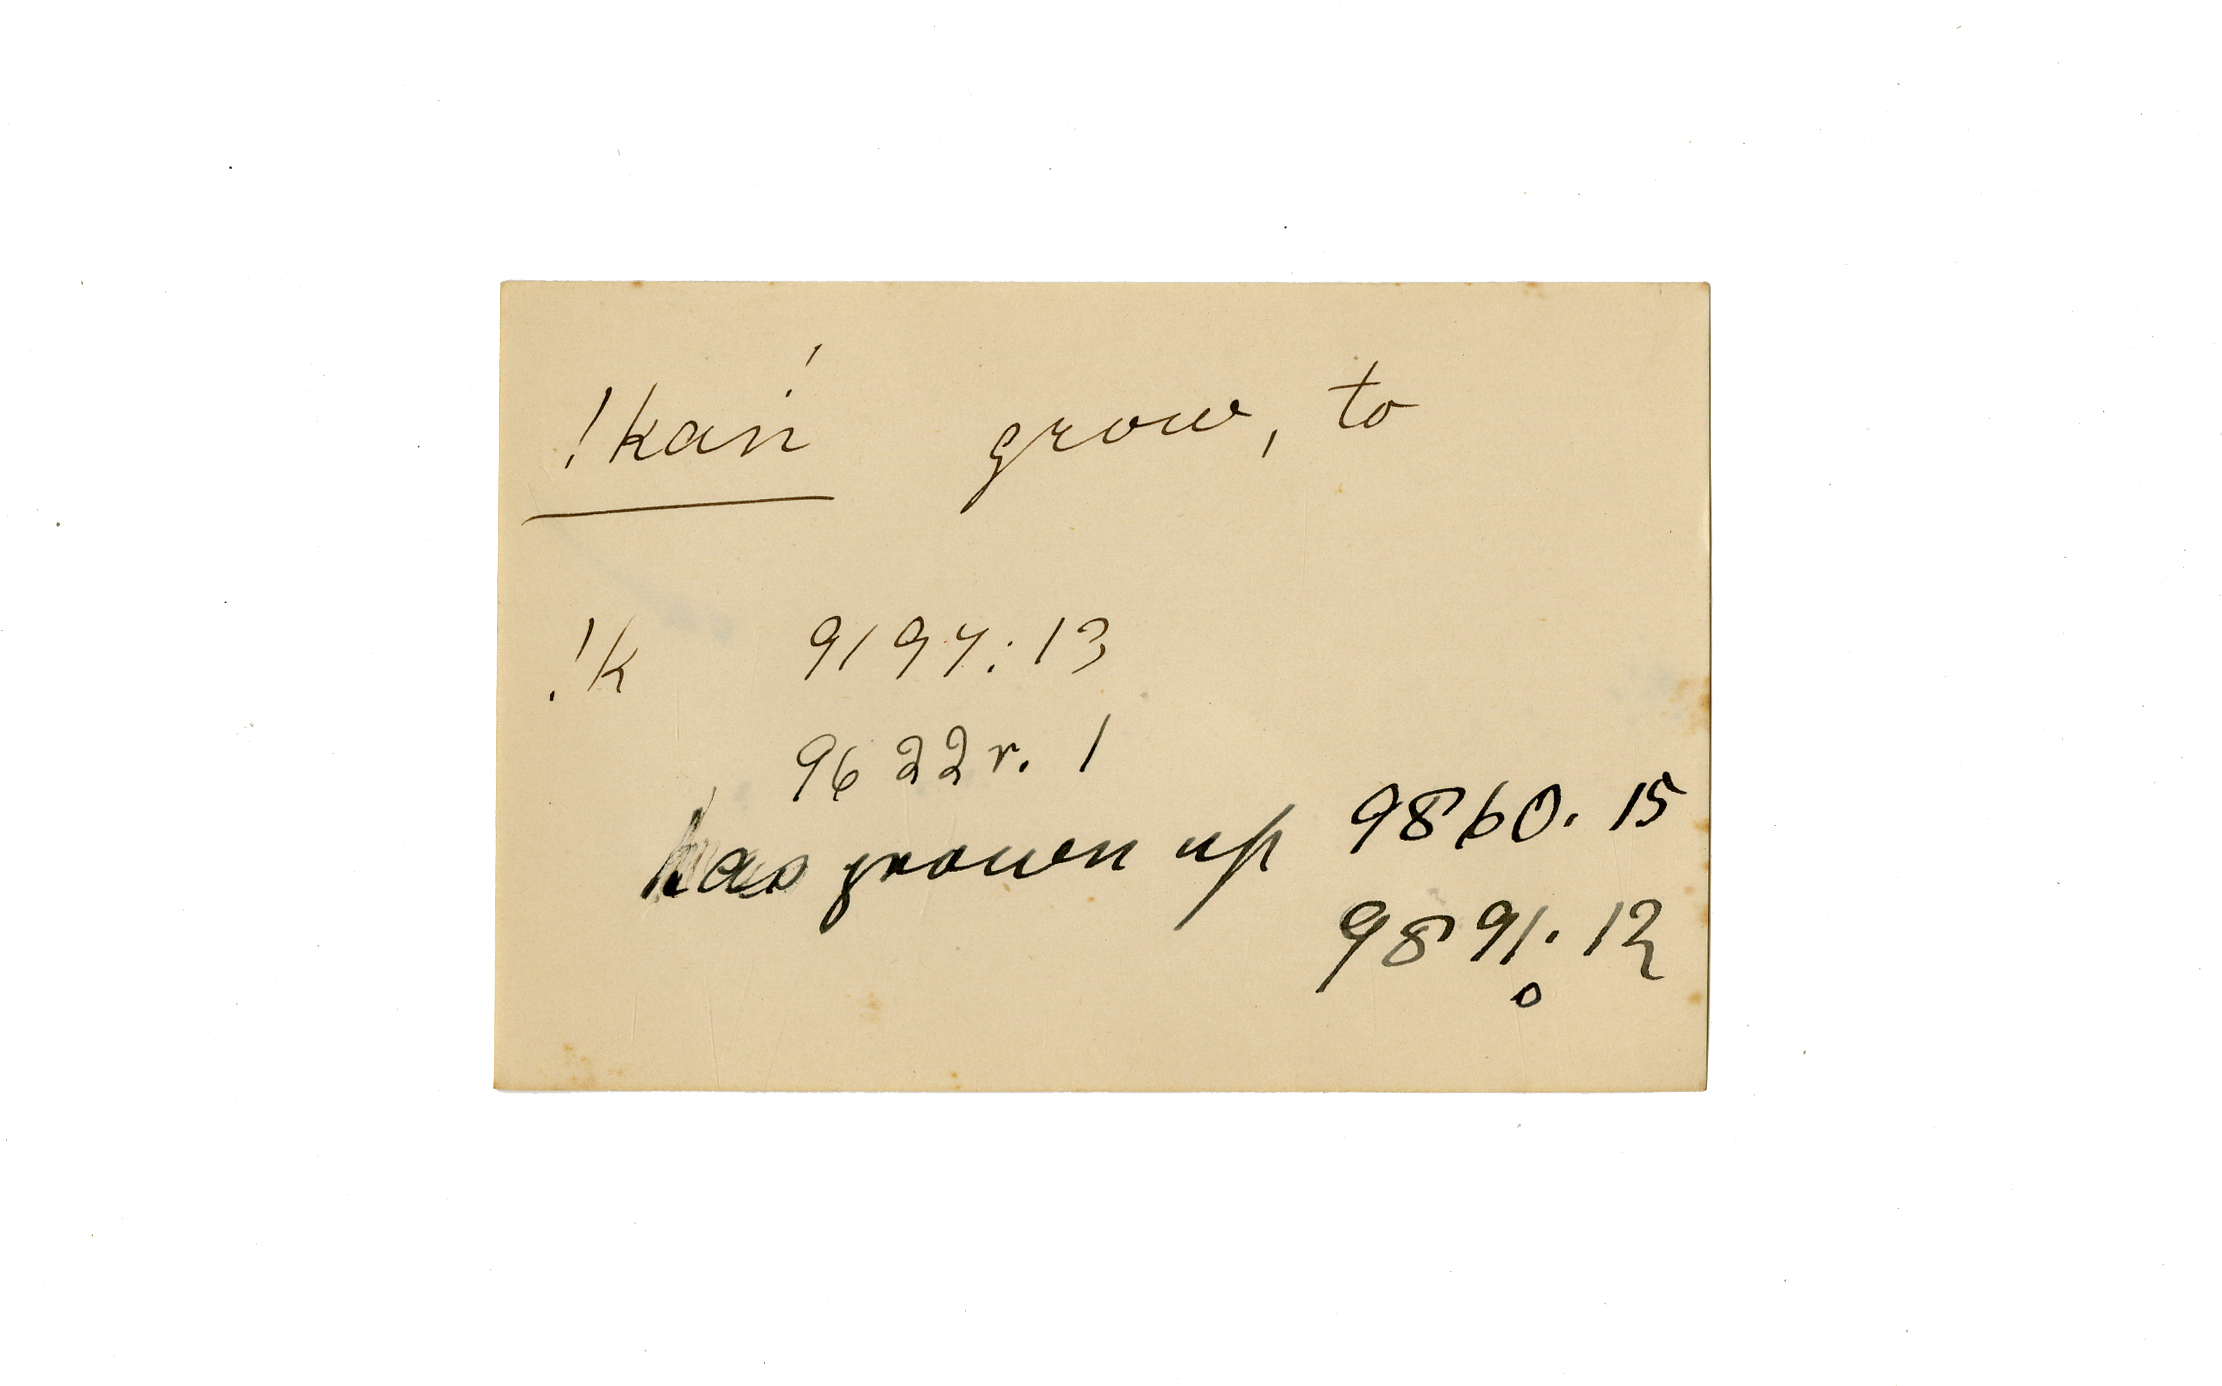 !kaṅ́ grow, to
!k 9194:13
9622r. 1
has grown up 9860. 15
9891. 12
o